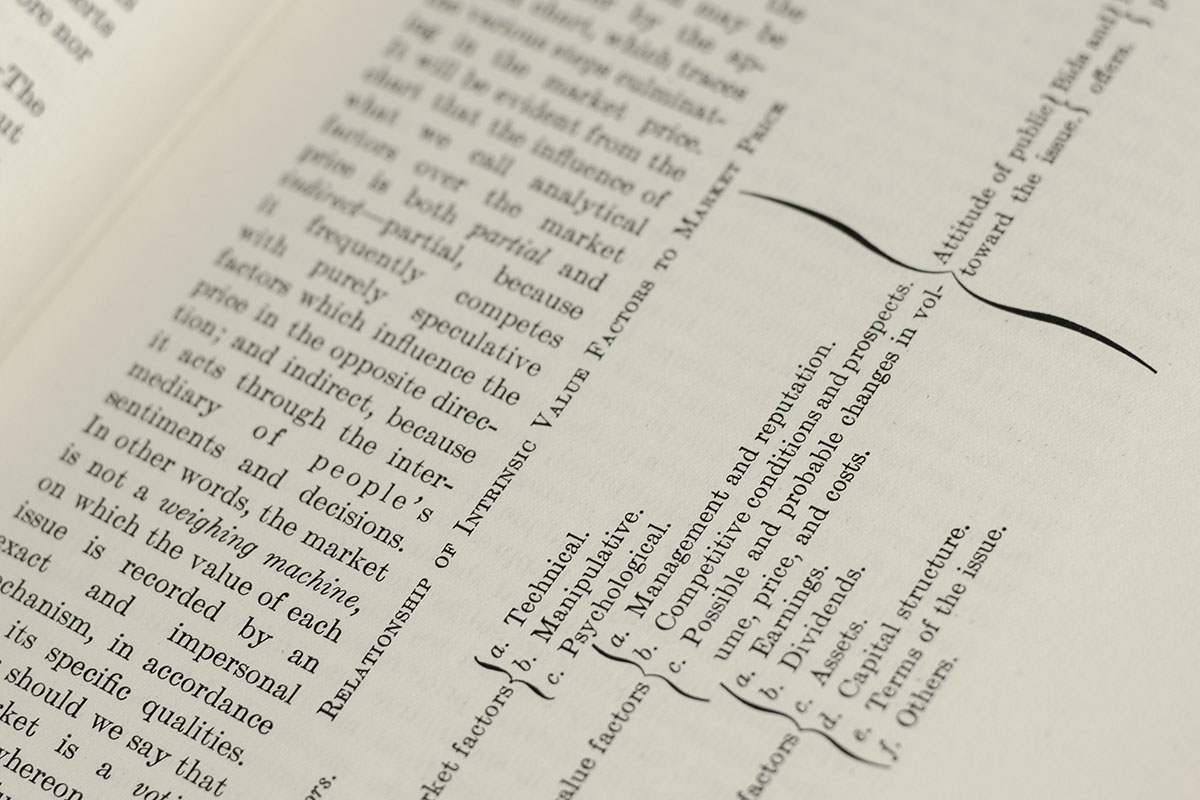 erts
ore nor
—The
out
the
may be
by the ap-
chart, which traces
the various steps culminat-
ing in the market price.
It will be evident from the
chart that the influence of
what we call analytical
factors over the market
price is both partial and
indirect—partial, because
it frequently competes
with purely speculative
factors which influence the
price in the opposite direc-
tion; and indirect, because
it acts through the inter-
mediary of people's
sentiments and decisions.
In other words, the market
is not a weighing machine,
on which the value of each
issue is recorded by an
exact and impersonal
chanism, in accordance
its specific qualities.
should we say that
ket is a voti
whereon
RELATIONSHIP OF INTRINSIC VALUE FACTORS TO MARKET PRICE
ors.
rket factors
a. Technical.
b. Manipulative.
c. Psychological.
alue factors
a. Management and reputation.
b. Competitive conditions and prospects.
c. Possible and probable changes in vol-
ume, price, and costs.
factors
a. Earnings.
b. Dividends.
c. Assets.
d. Capital structure.
e. Terms of the issue.
f. Others.
Attitude of public
toward the issue.
Bids and
offers.